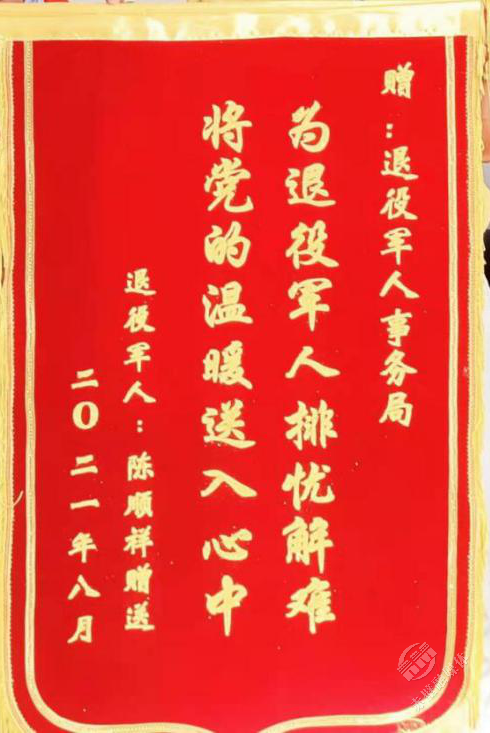 赠：退役军人事务局
为退役军人排忧解难
将党的温暖送入心中
退役军人：陈顺祥赠送
二〇二一年八月